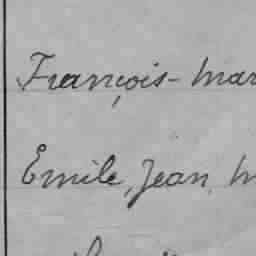 François- Mar
Emile, Jean, M